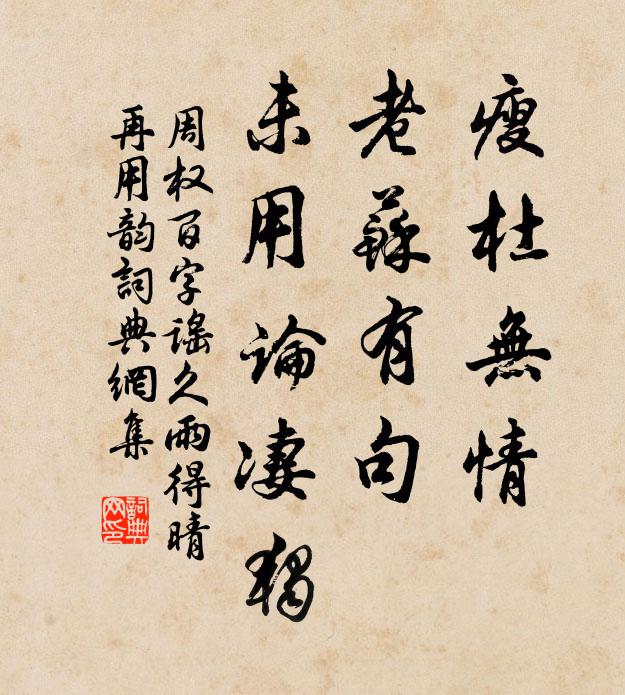 瘦杜無情
老蘇有句
未用論凄獨
周权百字謠久雨得晴
再用韵詞典網集
詞典
网印